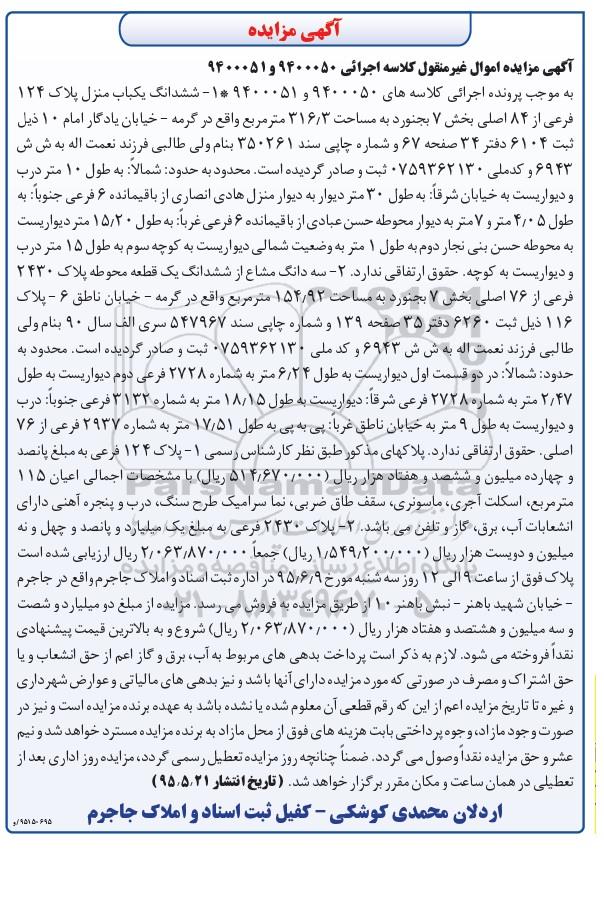 آگهی مزایده
آگهی مزایده اموال غیرمنقول کلاسه اجرائی ۹۴۰۰۰۵۰ و ۹۴۰۰۰۵۱
به موجب پرونده اجرائی کلاسه های ۹۴۰۰۰۵۰ و ۹۴۰۰۰۵۱ *۱- ششدانگ یکباب منزل پلاک ۱۲۴
فرعی از ۸۴ اصلی بخش ۷ بجنورد به مساحت ۳۱۶/۳ مترمربع واقع در گرمه - خیابان یادگار امام ۱۰ ذیل
ثبت ۶۱۰۴ دفتر ۳۴ صفحه ۶۷ و شماره چاپی سند ۳۵۰۲۶۱ بنام ولی طالبی فرزند نعمت اله به ش ش
۶۹۴۳ و کدملی ۰۷۵۹۳۶۲۱۳۰ ثبت و صادر گردیده است. محدود به حدود: شمالاً: به طول ۱۰ متر درب
و دیواریست به خیابان شرقاً: به طول ۳۰ متر دیوار به دیوار منزل هادی انصاری از باقیمانده ۶ فرعی جنوباً: به
طول ۴/۰۵ متر و ۷ متر به دیوار محوطه حسن عبادی از باقیمانده ۶ فرعی غرباً: به طول ۱۵/۲۰ متر دیواریست
به محوطه حسن بنی نجار دوم به طول ۱ متر به وضعیت شمالی دیواریست به کوچه سوم به طول ۱۵ متر درب
و دیواریست به کوچه. حقوق ارتفاقی ندارد. ۲- سه دانگ مشاع از ششدانگ یک قطعه محوطه پلاک ۲۴۳۰
فرعی از ۷۶ اصلی بخش ۷ بجنورد به مساحت ۱۵۴/۹۲ مترمربع واقع در گرمه - خیابان ناطق ۶ - پلاک
۱۱۶ ذیل ثبت ۶۲۶۰ دفتر ۳۵ صفحه ۱۳۹ و شماره چاپی سند ۵۴۷۹۶۷ سری الف سال ۹۰ بنام ولی
طالبی فرزند نعمت اله به ش ش ۶۹۴۳ و کد ملی ۰۷۵۹۳۶۲۱۳۰ ثبت و صادر گردیده است. محدود به
حدود: شمالاً: در دو قسمت اول دیواریست به طول ۶/۲۴ متر به شماره ۲۷۲۸ فرعی دوم دیواریست به طول
۲/۴۷ متر به شماره ۲۷۲۸ فرعی شرقاً: دیواریست به طول ۱۸/۱۵ متر به شماره ۳۱۳۲ فرعی جنوباً: درب
و دیواریست به طول ۹ متر به خیابان ناطق غرباً: پی به پی به طول ۱۷/۵۱ متر به شماره ۲۹۳۷ فرعی از ۷۶
اصلی. حقوق ارتفاقی ندارد. پلاکهای مذکور طبق نظر کارشناس رسمی ۱- پلاک ۱۲۴ فرعی به مبلغ پانصد
و چهارده میلیون و ششصد و هفتاد هزار ریال (۵۱۴/۶۷۰/۰۰۰ ریال) با مشخصات اجمالی اعیان ۱۱۵
مترمربع، اسکلت آجری، ماسونری، سقف طاق ضربی، نما سرامیک طرح سنگ، درب و پنجره آهنی دارای
انشعابات آب، برق، گاز و تلفن می باشد. ۲- پلاک ۲۴۳۰ فرعی به مبلغ یک میلیارد و پانصد و چهل و نه
میلیون و دویست هزار ریال (۱/۵۴۹/۲۰۰/۰۰۰ ریال) جمعاً ۲/۰۶۳/۸۷۰/۰۰۰ ریال ارزیابی شده است
پلاک فوق از ساعت ۹ الی ۱۲ روز سه شنبه مورخ ۹۵/۶/۹ در اداره ثبت اسناد و املاک جاجرم واقع در جاجرم
- خیابان شهید باهنر - نبش باهنر ۱۰ از طریق مزایده به فروش می رسد. مزایده از مبلغ دو میلیارد و شصت
و سه میلیون و هشتصد و هفتاد هزار ریال (۲/۰۶۳/۸۷۰/۰۰۰ ریال) شروع و به بالاترین قیمت پیشنهادی
نقداً فروخته می شود. لازم به ذکر است پرداخت بدهی های مربوط به آب، برق و گاز اعم از حق انشعاب و یا
حق اشتراک و مصرف در صورتی که مورد مزایده دارای آنها باشد و نیز بدهی های مالیاتی و عوارض شهرداری
و غیره تا تاریخ مزایده اعم از این که رقم قطعی آن معلوم شده یا نشده باشد به عهده برنده مزایده است و نیز در
صورت وجود مازاد، وجوه پرداختی بابت هزینه های فوق از محل مازاد به برنده مزایده مسترد خواهد شد و نیم
عشر و حق مزایده نقداً وصول می گردد. ضمناً چنانچه روز مزایده تعطیل رسمی گردد، مزایده روز اداری بعد از
تعطیلی در همان ساعت و مکان مقرر برگزار خواهد شد. (تاریخ انتشار ۹۵٫۵٫۲۱)
اردلان محمدی کوشکی - کفیل ثبت اسناد و املاک جاجرم
۹۵۱۵۰۶۹۵/و
ParsNamadData
پایگاه اطلاع رسانی مناقصه و مزایده
۰۲۱-۸۸۳۴۹۶۷۰-۵